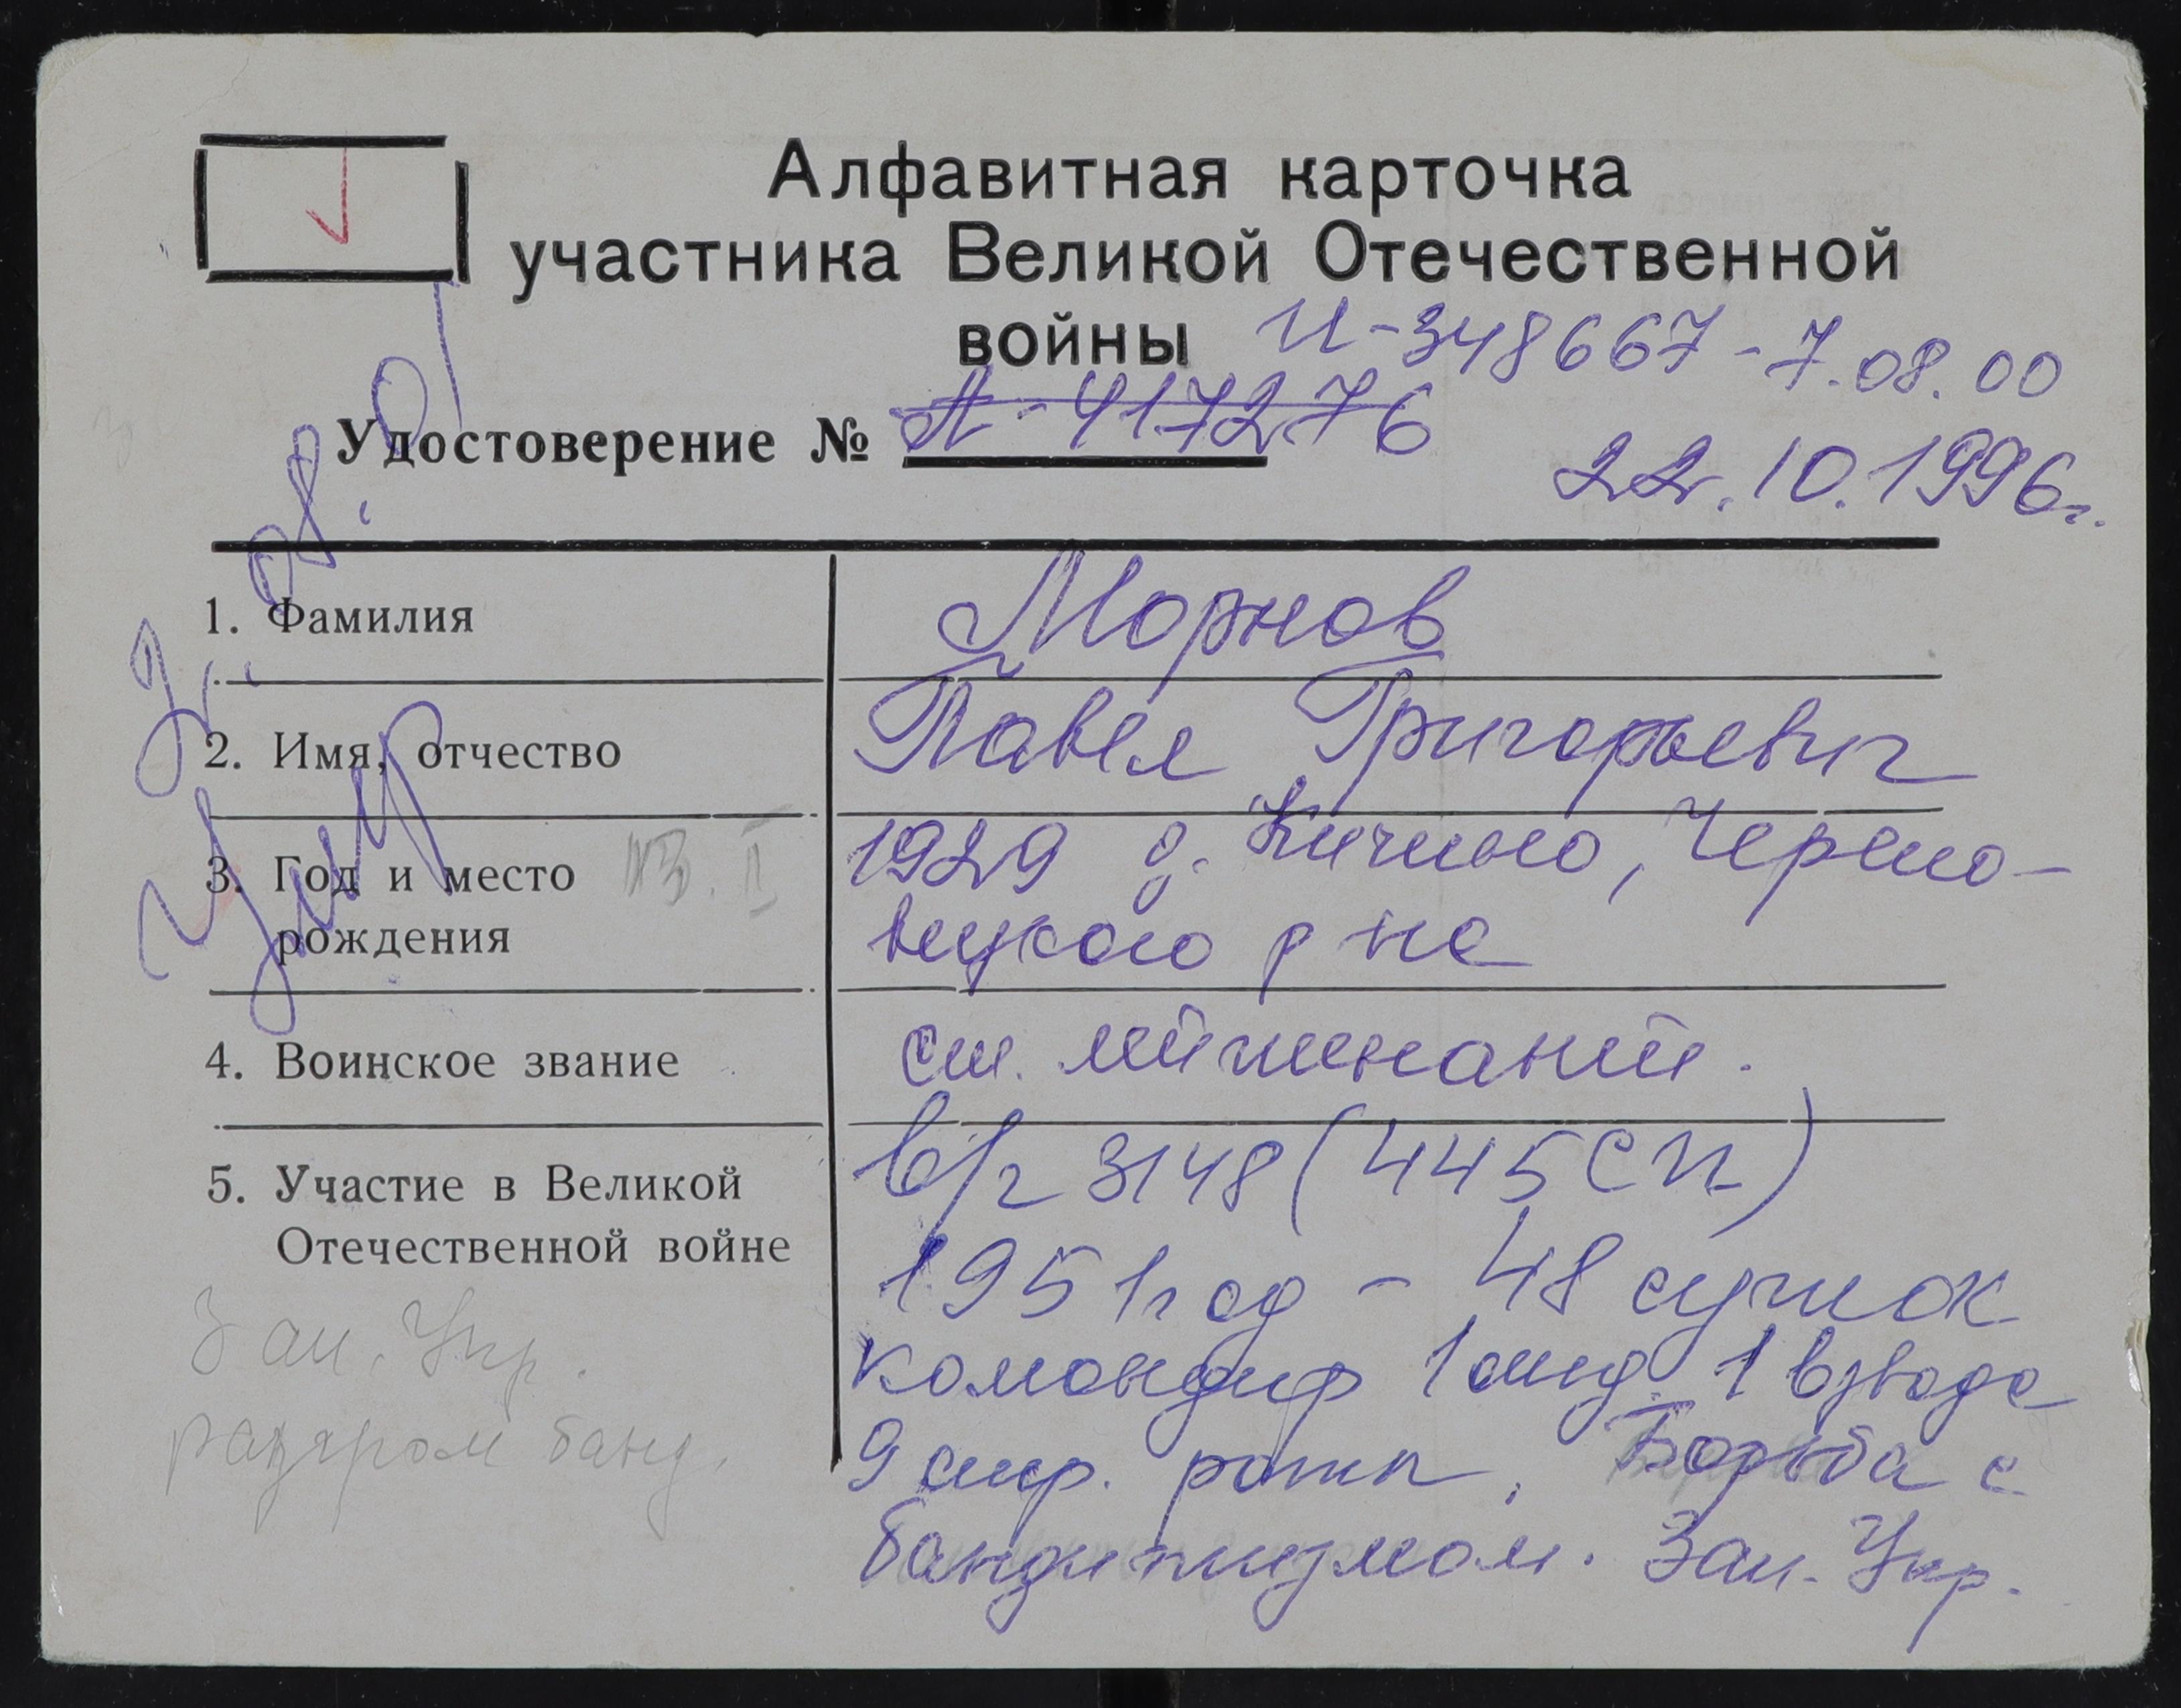 Алфавитная карточка
участника Великой Отечественной
войны И-348667-7.08.00
Удостоверение № А-4172276
22.10.1996г.
1. Фамилия Морнов
2. Имя, отчество Павел Григорьевич
3. Год и место рождения 1929 д. Кичино, Черепо-
вецкого р на
4. Воинское звание ст. лейтенант.
5. Участие в Великой Отечественной войне в/ч 3148 (445 СП)
1951 год - 48 суток
командир 1 отд. 1 взвода
9 стр. роты. Борьба с
бандитизмом. Зап. Укр.
Зап. Укр.
разгром банд.
Умер
08.01